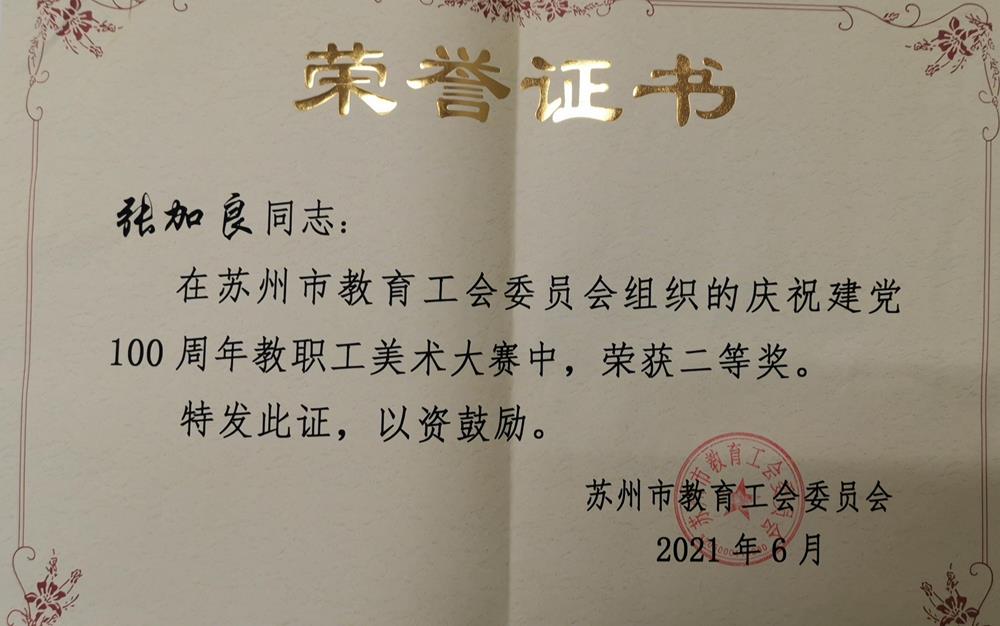 荣誉证书
张加良同志：
在苏州市教育工会委员会组织的庆祝建党
100周年教职工美术大赛中，荣获二等奖。
特发此证，以资鼓励。
苏州市教育工会委员会
苏州市教育工会委员会
2021年6月